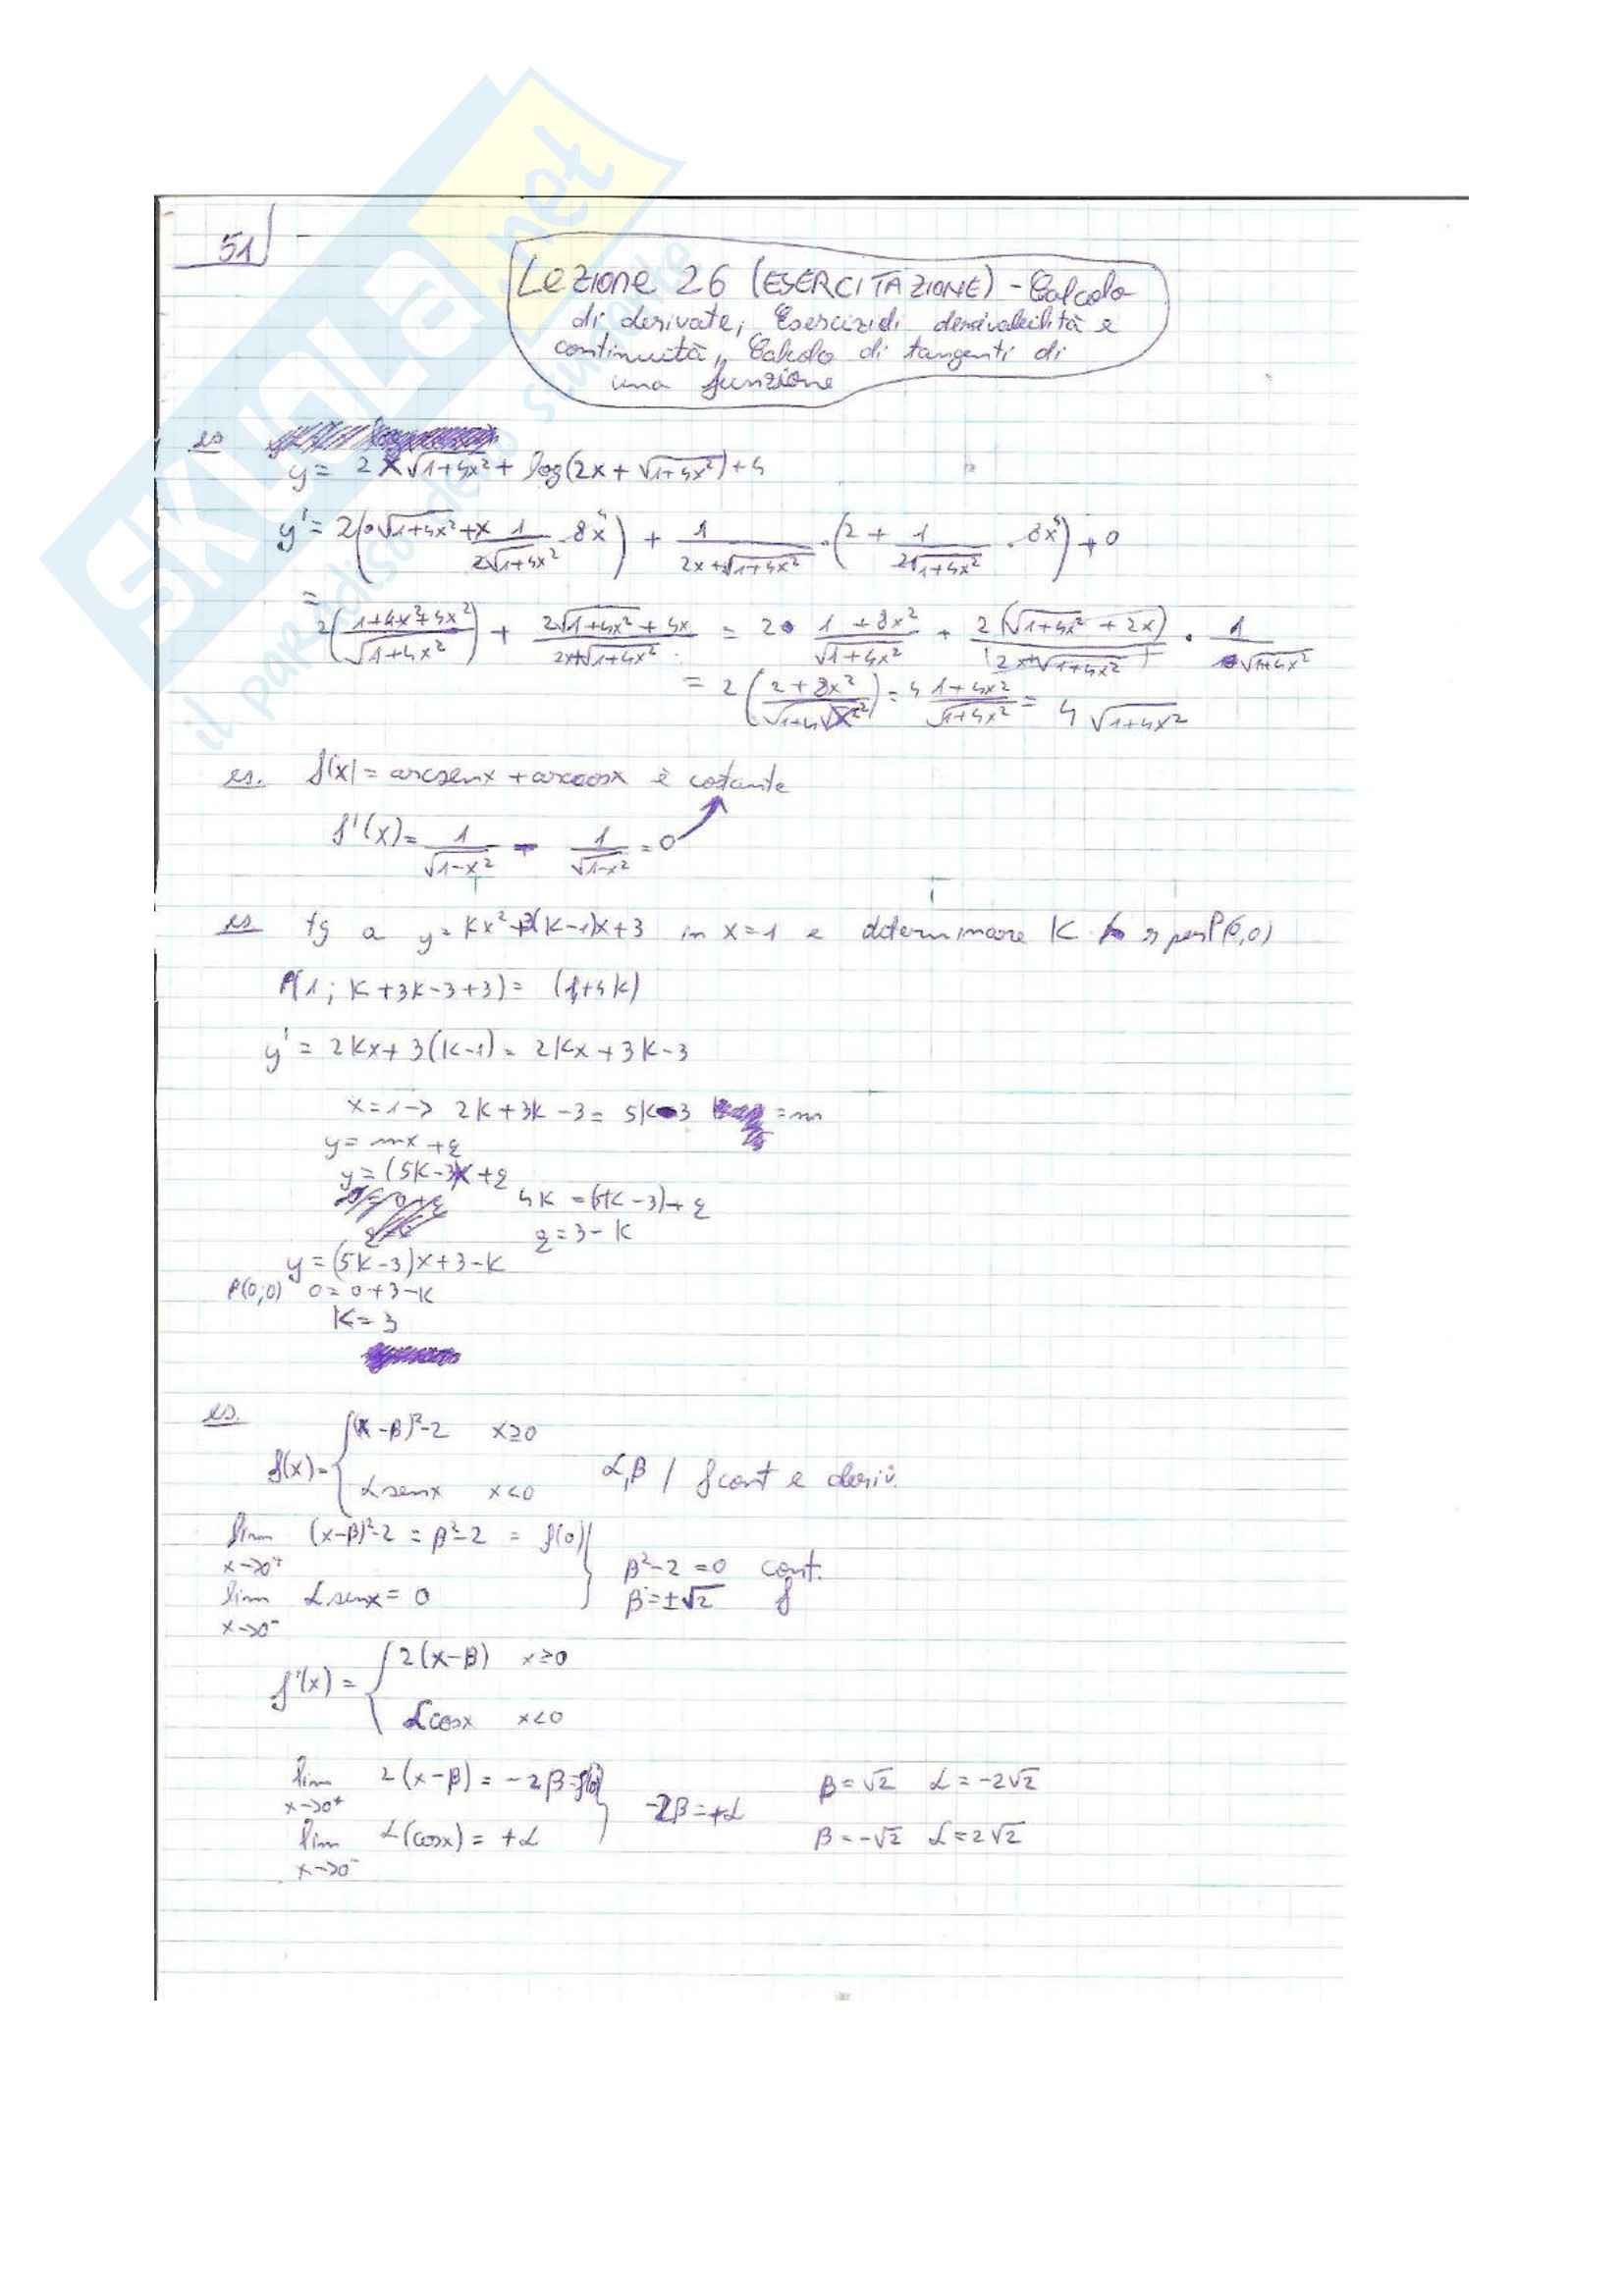 51
Lezione 26 (ESERCITAZIONE) - Calcolo
di derivate, Esercizi di derivabilità e
continuità, Calcolo di tangenti di
una funzione
SKUOLA.net
il paradiso dello studente
es
y = 2x√(1+4x²) + log(2x + √(1+4x²)) + 4
y' = 2(√(1+4x²) + x 1/(2√(1+4x²)) · 8x) + 1/(2x+√(1+4x²)) · (2 + 1/(2√(1+4x²)) · 8x) + 0
=
2((1+4x²+4x²)/√(1+4x²)) + (2√(1+4x²) + 4x)/(2x+√(1+4x²)) = 2 · (1+8x²)/√(1+4x²) + 2(√(1+4x²) + 2x)/(2x+√(1+4x²)) · 1/√(1+4x²)
= 2((2+8x²)/√(1+4x²)) = 4 (1+4x²)/√(1+4x²) = 4√(1+4x²)
es. f(x) = arcsenx + arccosx è costante
f'(x) = 1/√(1-x²) - 1/√(1-x²) = 0
es tg a y = kx²+3(k-1)x+3 in x=1 e determinare K per P(0,0)
P(1; K+3K-3+3) = (1, 4k)
y' = 2kx + 3(k-1) = 2kx + 3k-3
x=1 → 2k+3k-3 = 5k-3 = m
y = mx + q
y = (5k-3)x + q
4k = (5k-3) + q
q = 3-k
y = (5k-3)x + 3-k
P(0;0) 0 = 0+3-k
K = 3
es.
f(x) = { (x-β)²-2 x≥0
α senx x<0
α, β / f cont e deriv.
lim x→0⁺ (x-β)²-2 = β²-2 = f(0)
lim x→0⁻ α senx = 0
β²-2 = 0 cont.
β = ±√2 f
f'(x) = { 2(x-β) x≥0
α cosx x<0
lim x→0⁺ 2(x-β) = -2β = f'(0)
lim x→0⁻ α(cosx) = +α
-2β = +α
β = √2 α = -2√2
β = -√2 α = 2√2